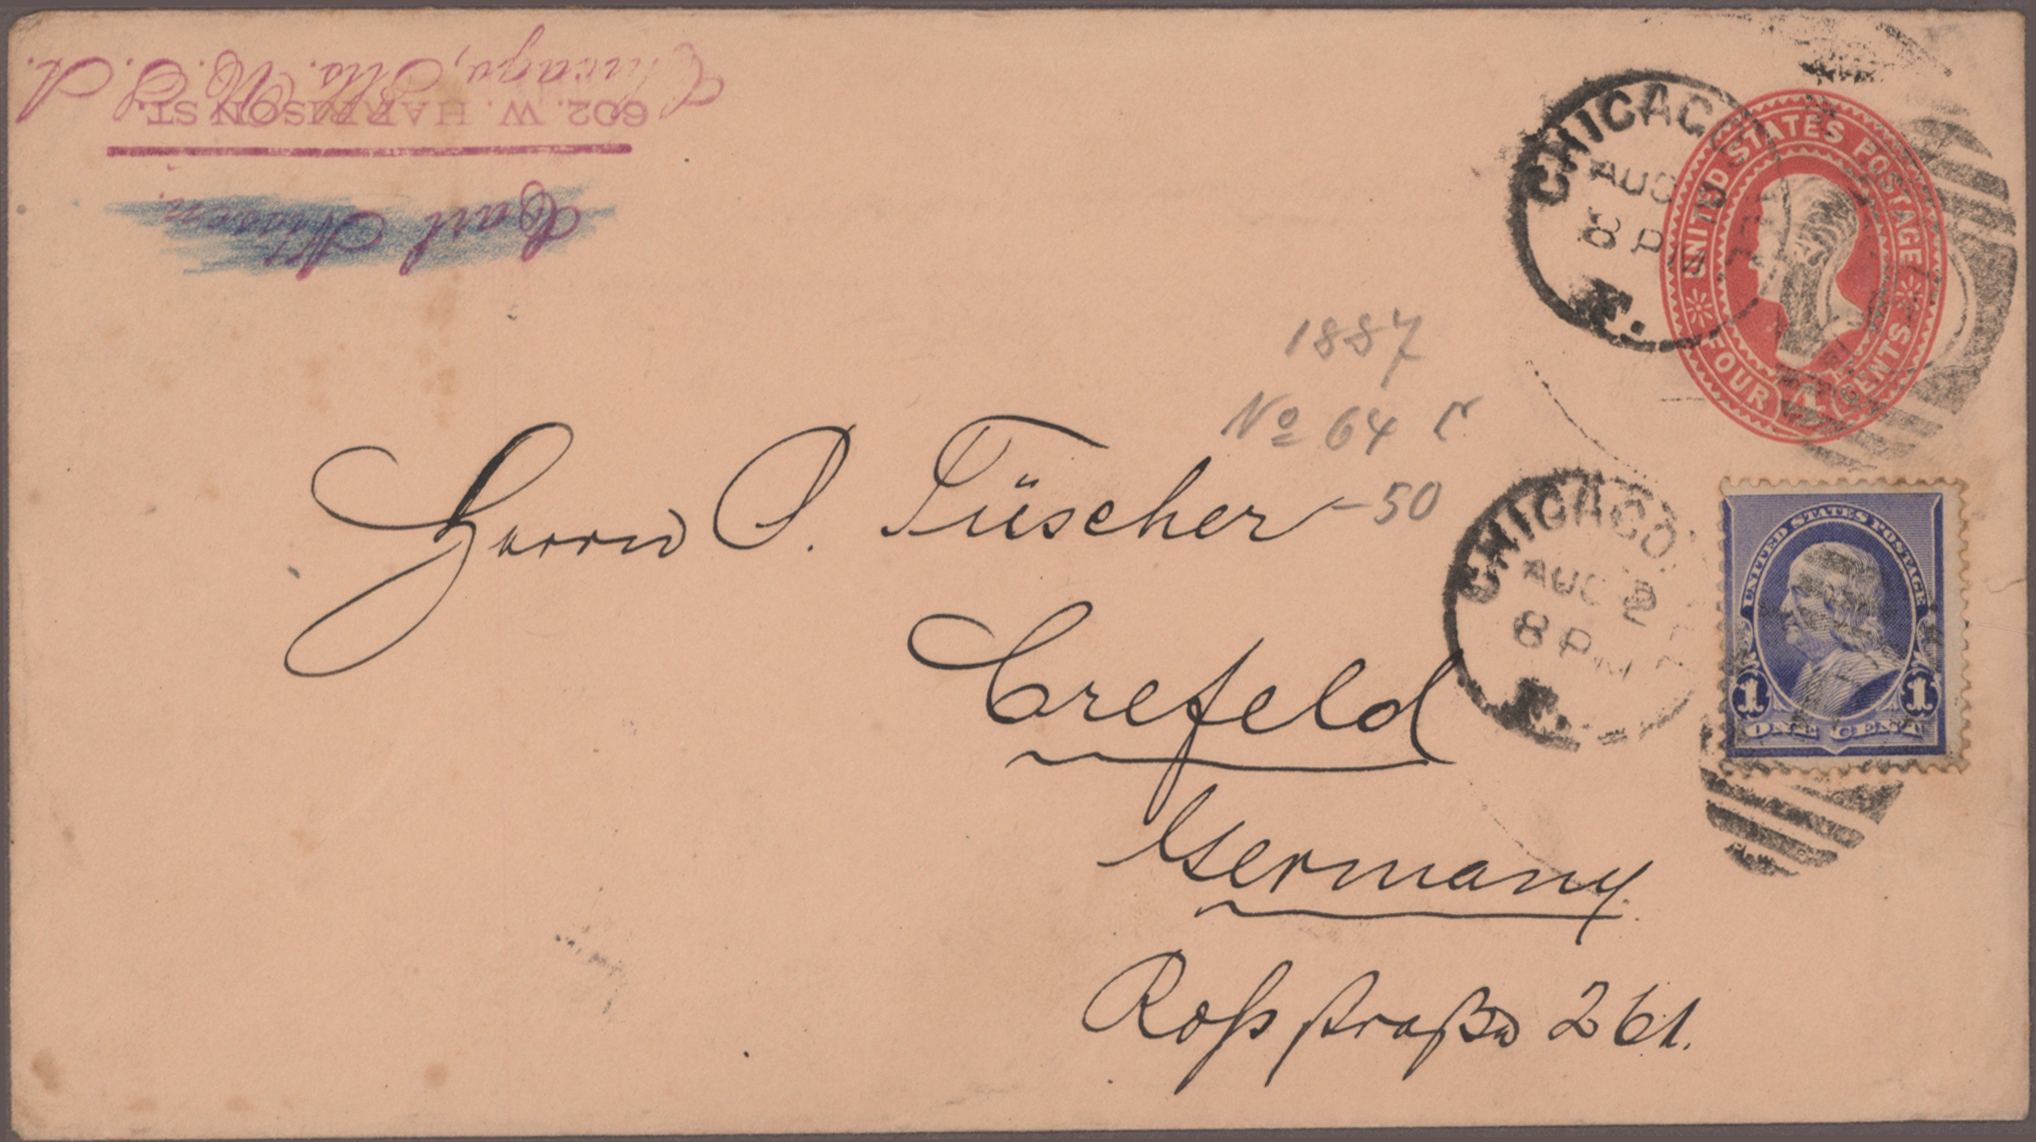 Carl
602. W. HARRISON ST.
Chicago, Ills. U. S. A.
CHICAGO
AUG
8 PM
UNITED STATES POSTAGE
FOUR 4 CENTS
1887
No 64
-50
Herrn P. Tüscher
Crefeld
Germany.
Roßstraße
CHICAGO
AUG 2
8 PM
UNITED STATES POSTAGE
1 1
ONE CENT